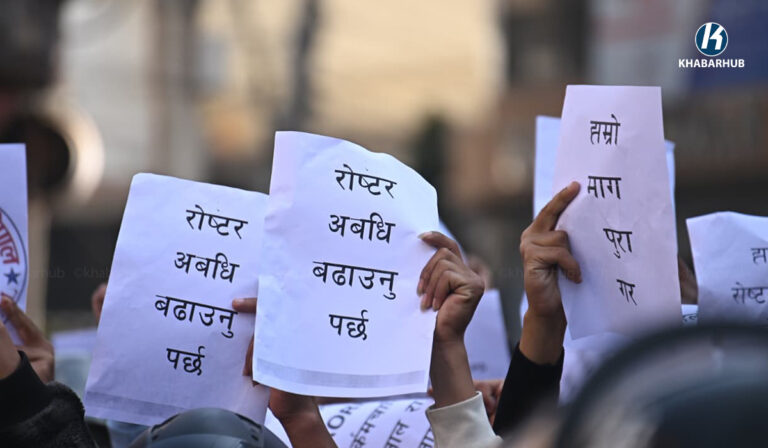 KHABARHUB
रोष्टर
अबधि
बढाउनु
पर्छ
रोष्टर
अबधि
बढाउनु
पर्छ
हाम्रो
माग
पुरा
गर